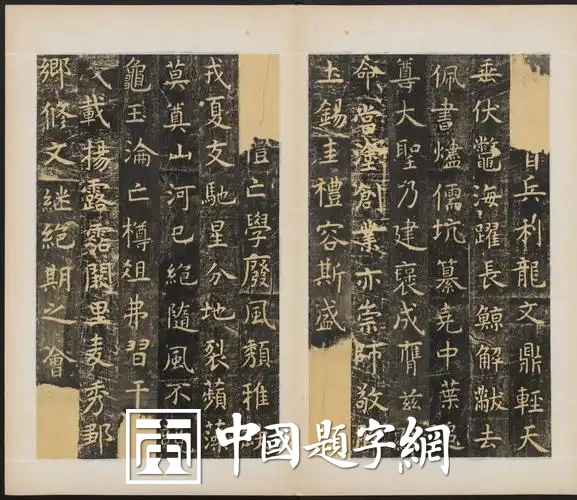 兵利龍文鼎輕天
垂伏鼈海躍長鯨解黻去
佩書燼儒坑纂堯中葉
尊大聖乃建襃成膺兹
命當塗創業亦崇師敬
土錫圭禮容斯盛
亡學廢風頹雅
戎夏交馳星分地裂蘋藻
莫奠山河已絶隨風不
龜玉淪亡樽俎弗習干
載揚露霑闕里麦秀鄒
鄉脩文継絶期之會
中國題字網